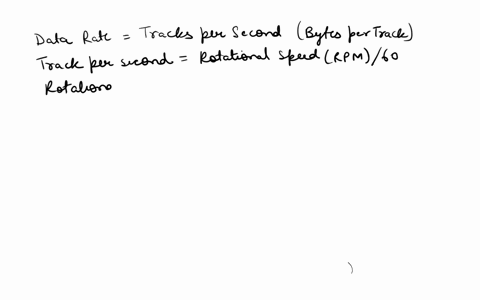 Data Rate = Tracks per Second (Bytes per Track)
Track per second = Rotational Speed (RPM)/60
Rotationo